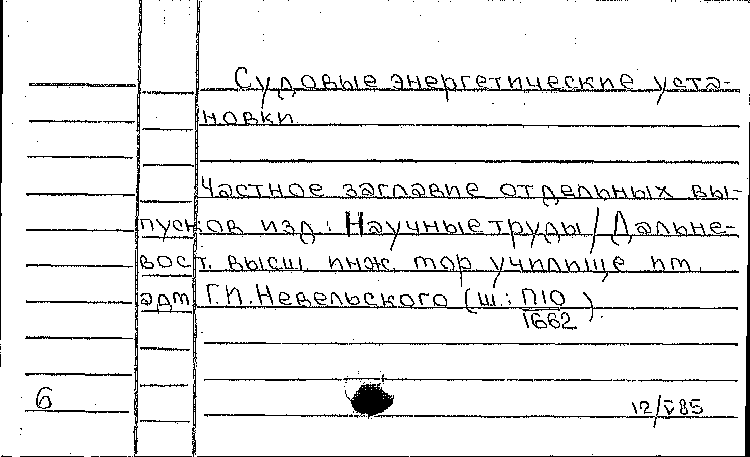 Судовые энергетические уста-
новки.
Частное заглавие отдельных вы-
пусков изд.: Научные труды / Дальне-
вост. высш. инж. мор училище им.
адм Г.И. Невельского (Ш.: П10/1662).
6
12/V 85